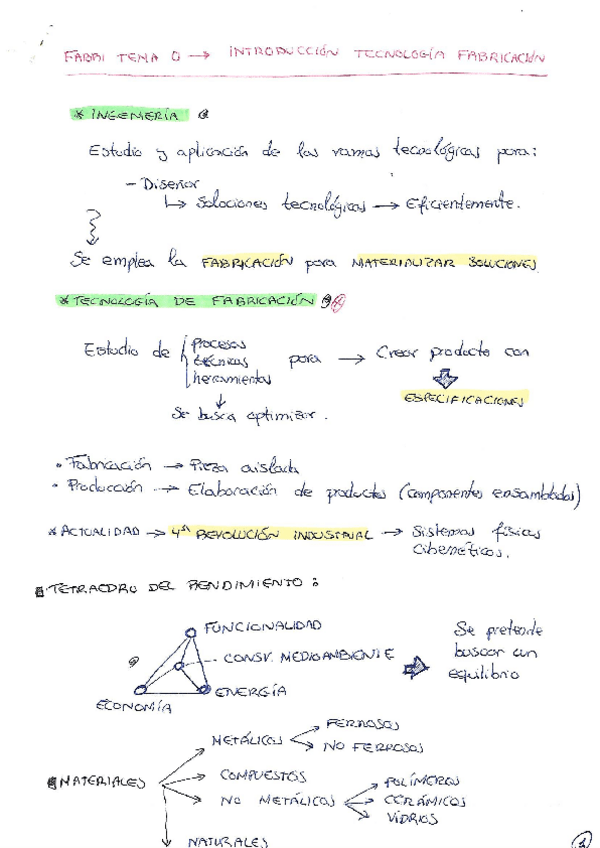 FABRI TEMA 0 → INTRODUCCIÓN TECNOLOGÍA FABRICACIÓN
* INGENIERÍA
Estudio y aplicación de las ramas tecnológicas para:
- Diseñar
↳ Soluciones tecnológicas → Eficientemente.
Se emplea la FABRICACIÓN para MATERIALIZAR SOLUCIONES
* TECNOLOGÍA DE FABRICACIÓN
Estudio de { procesos técnicas herramientas para → Crear producto con
ESPECIFICACIONES
Se busca optimizar.
• Fabricación → Pieza aislada
• Producción → Elaboración de productos (componentes ensamblados)
* ACTUALIDAD → 4ª REVOLUCIÓN INDUSTRIAL → Sistemas físicos
cibernéticos.
TETRAEDRO DEL RENDIMIENTO:
FUNCIONALIDAD
CONSV. MEDIOAMBIENTE
ENERGÍA
ECONOMÍA
Se pretende
buscar un
equilibrio
MATERIALES
METÁLICOS
FERROSOS
NO FERROSOS
COMPUESTOS
NO METÁLICOS
POLÍMEROS
CERÁMICOS
VIDRIOS
NATURALES